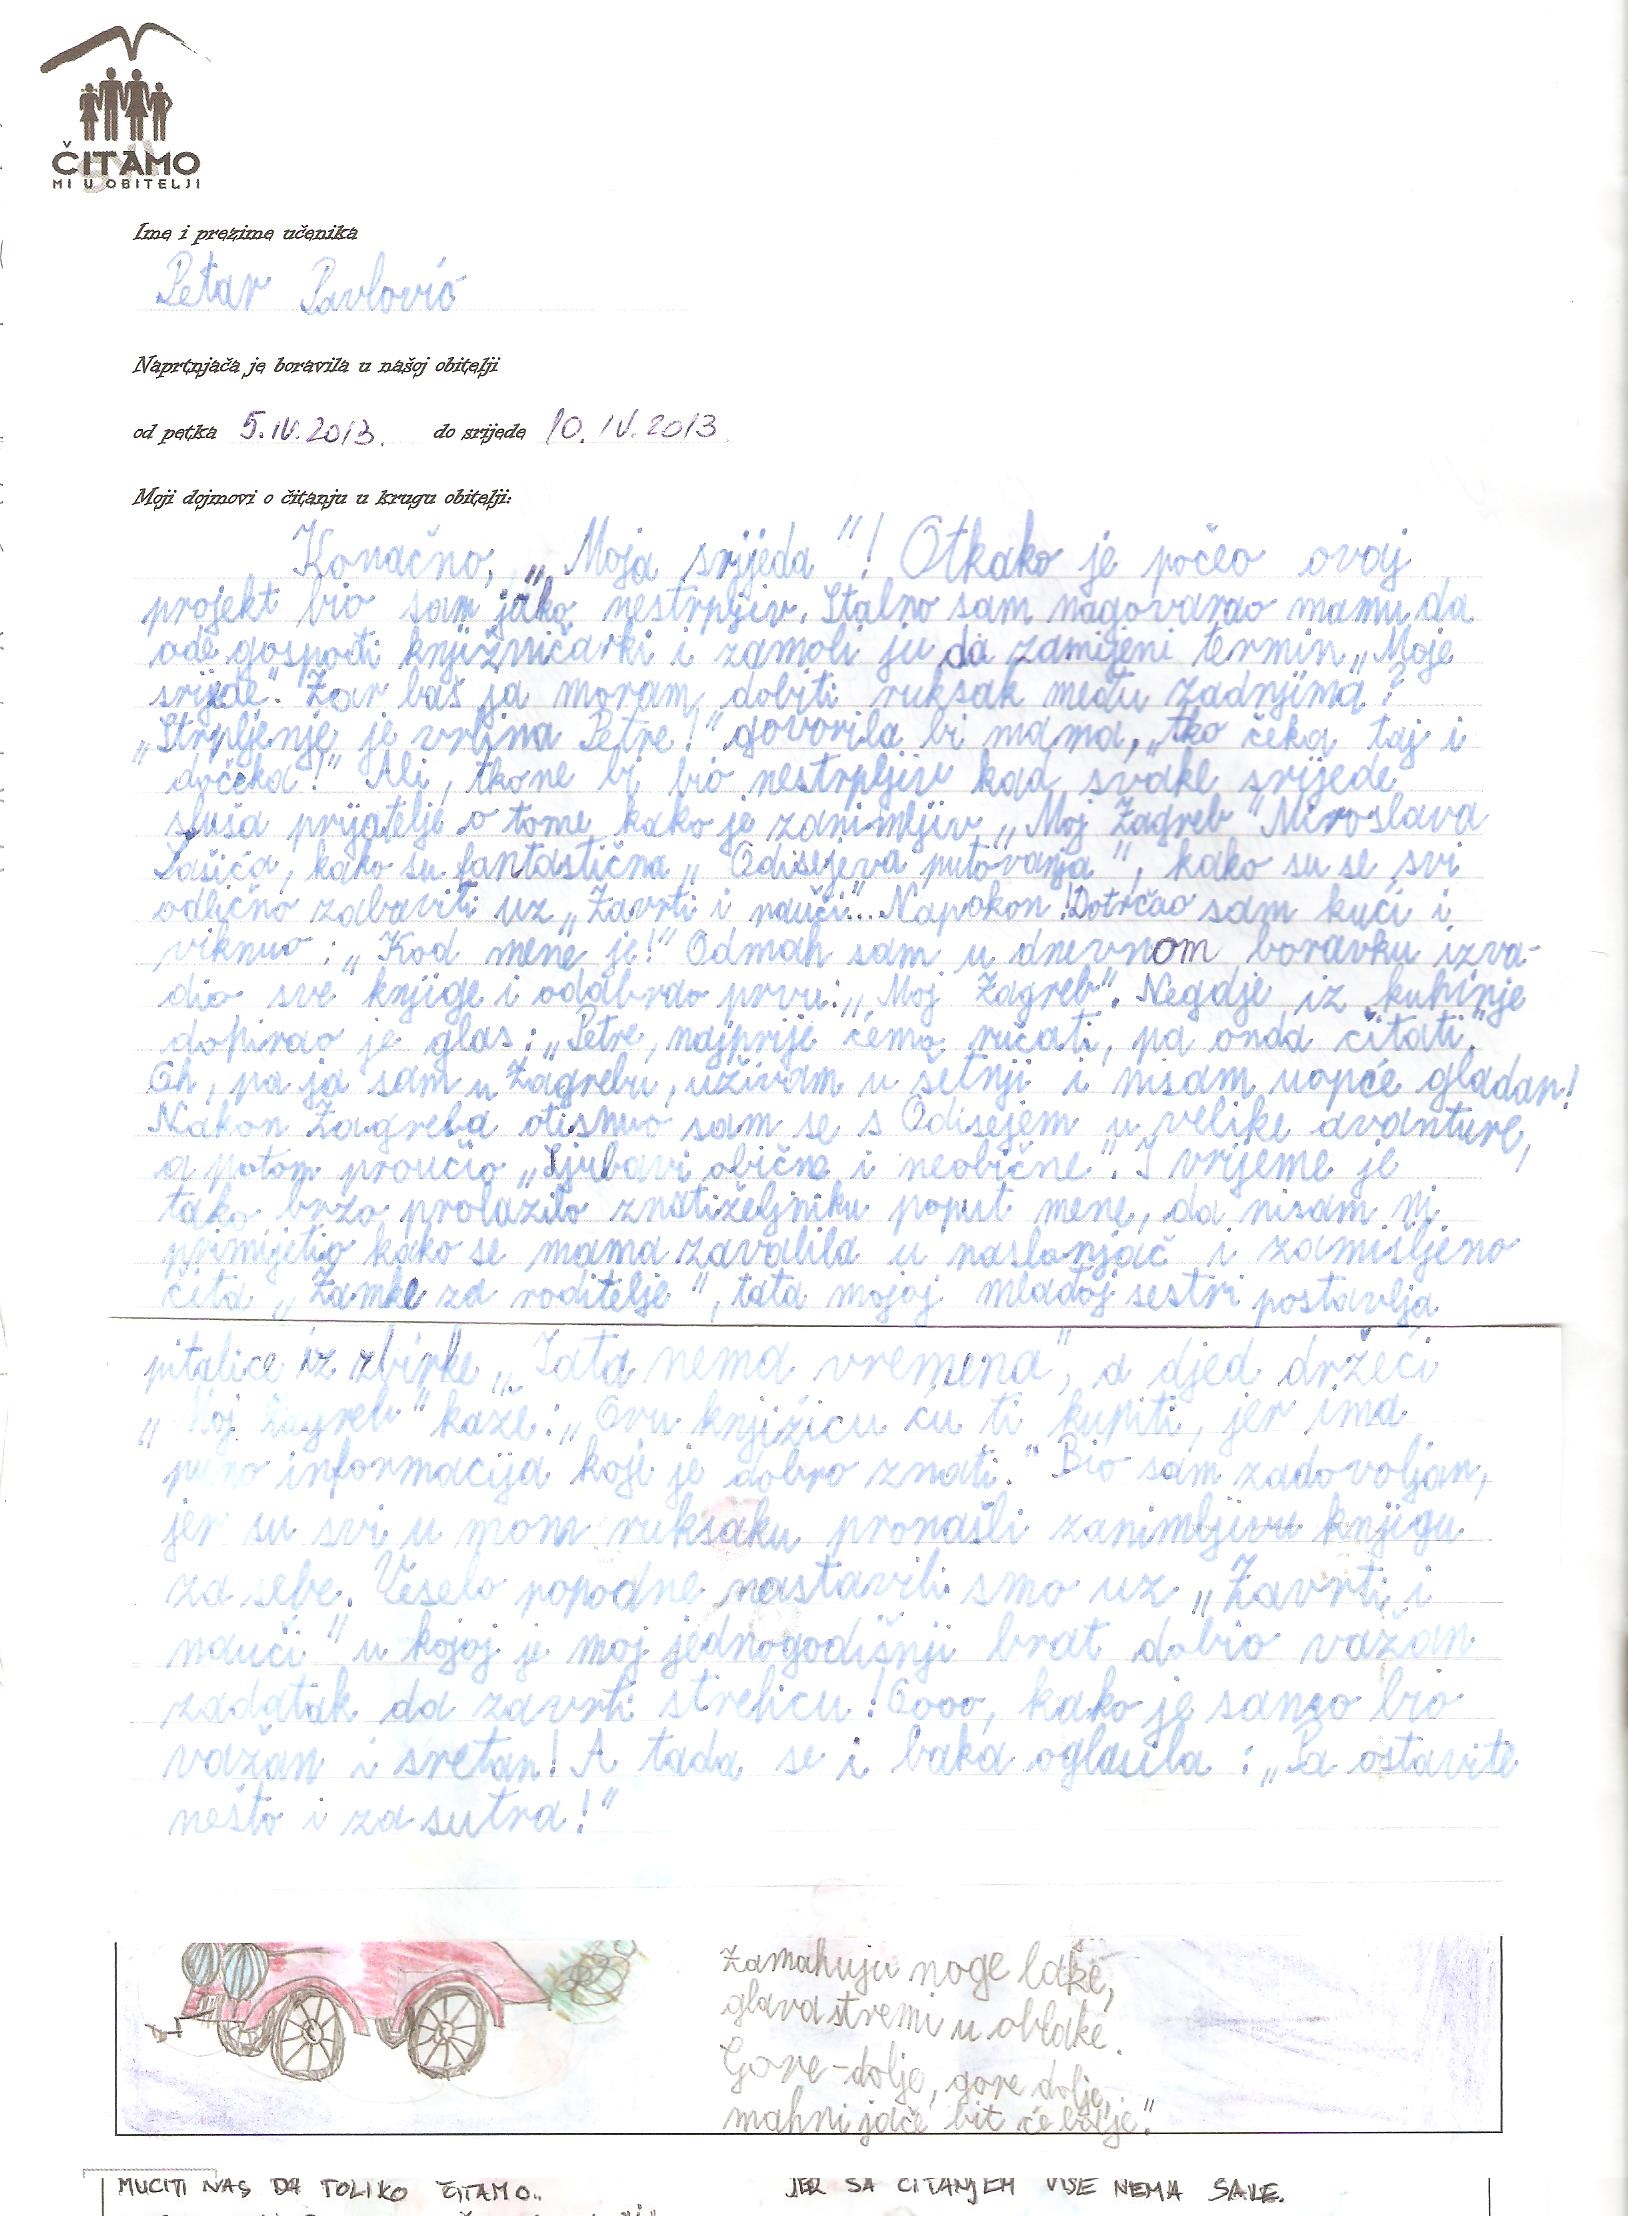 ČITAMO
MI U OBITELJI
Ime i prezime učenika
Petar Pavlović
Naprtnjača je boravila u našoj obitelji
od petka 5. IV. 2013. do srijede 10. IV. 2013.
Moji dojmovi o čitanju u krugu obitelji:
Konačno, „Moja srijeda"! Otkako je počeo ovaj
projekt bio sam jako nestrpljiv. Stalno sam nagovarao mamu da
ode gospođi knjižničarki i zamoli ju da zamijeni termin „Moje
srijede". Zar baš ja moram dobiti ruksak među zadnjima?
„Strpljenje je vrlina Petre!" govorila bi mama, „tko čeka taj i
dočeka!" Ali, tko ne bi bio nestrpljiv kad svake srijede
sluša prijatelje o tome kako je zanimljiv „Moj Zagreb" Miroslava
Šašića, kako su fantastična „Odisejeva putovanja", kako su se svi
odlično zabaviti uz „Zavrti i nauči"... Napokon! Dotrčao sam kući i
viknuo: „Kod mene je!" Odmah sam u dnevnom boravku izva-
dio sve knjige i odabrao prvu: „Moj Zagreb". Negdje iz kuhinje
dopirao je glas: „Petre, najprije ćemo ručati, pa onda čitati."
Oh, pa ja sam u Zagrebu, uživam u šetnji i nisam uopće gladan!
Nakon Zagreba otisnuo sam se s Odisejem u velike avanture,
a potom proučio „Ljubavi obične i neobične". I vrijeme je
tako brzo prolazilo znatiželjniku poput mene, da nisam ni
primijetio kako se mama zavalila u naslonjač i zamišljeno
čita „Zamke za roditelje", tata mojoj mlađoj sestri postavlja
pitalice iz zbirke „Tata nema vremena", a djed držeći
„Moj Zagreb" kaže: „Ovu knjižicu ću ti kupiti, jer ima
puno informacija koje je dobro znati." Bio sam zadovoljan,
jer su svi u mom ruksaku pronašli zanimljivu knjigu
za sebe. Veselo popodne nastavili smo uz „Zavrti i
nauči" u kojoj je moj jednogodišnji brat dobio važan
zadatak da zavrti strelicu! Oooo, kako je samo bio
važan i sretan! A tada se i baka oglasila: „Pa ostavite
nešto i za sutra!"
Zamahuju noge lake,
glava stremi u oblake.
Gore-dolje, gore dolje,
mahni jače bit će bolje."
MUČITI NAS DA TOLIKO ČITAMO..
JER SA ČITANJEM VIŠE NEMA ŠALE.